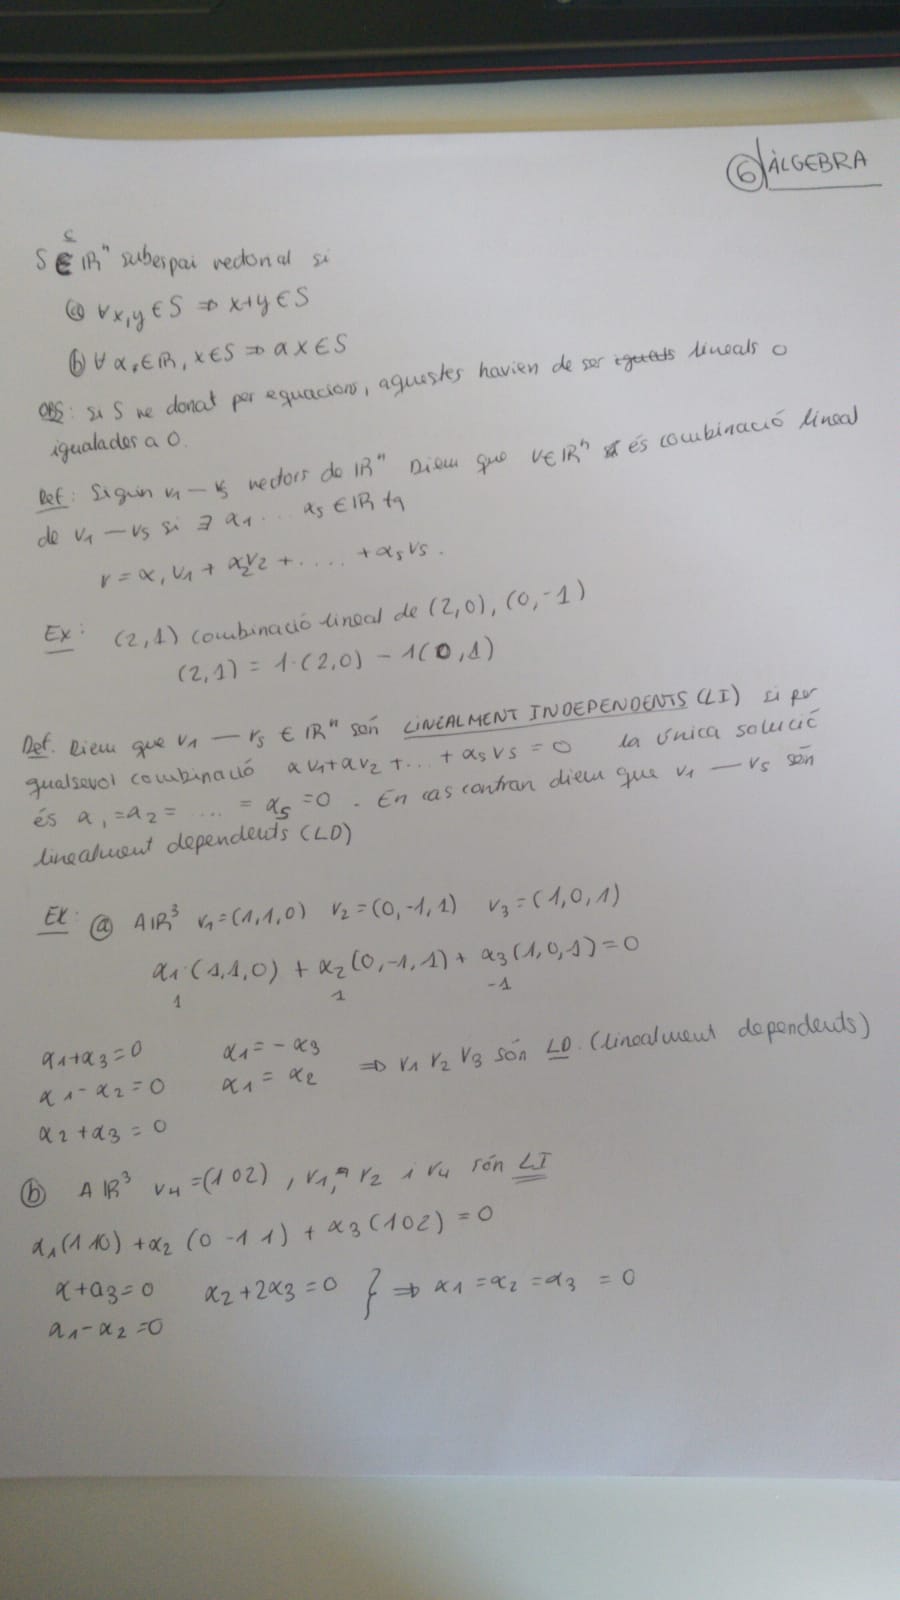 ⑥ ÀLGEBRA
S ⊆ ℝⁿ subespai vectorial si
ⓐ ∀x,y ∈ S ⇒ x+y ∈ S
ⓑ ∀α, ∈ ℝ, x ∈ S ⇒ αx ∈ S
OBS: si S ve donat per equacions, aquestes havien de ser lineals o
igualades a 0.
Def: Siguin v1 — vs vectors de ℝⁿ Diem que v ∈ ℝⁿ és combinació lineal
de v1 — vs si ∃ α1 ... αs ∈ ℝ tq
v = α1v1 + α2v2 + .... + αsvs.
Ex: (2,1) combinació lineal de (2,0), (0,-1)
(2,1) = 1·(2,0) - 1(0,1)
Def. Diem que v1 — vs ∈ ℝⁿ són LINEALMENT INDEPENDENTS (LI) si per
qualsevol combinació αv1+αv2 +...+ αsvs = 0 la única solució
és α1=α2= ... = αs=0. En cas contrari diem que v1 — vs són
linealment dependents (LD)
Ex: ⓐ A ℝ³ v1=(1,1,0) v2=(0,-1,1) v3=(1,0,1)
α1·(1,1,0) + α2(0,-1,1) + α3(1,0,1)=0
1 1 -1
α1+α3=0 α1=-α3
α1-α2=0 α1=α2 ⇒ v1 v2 v3 són LD. (linealment dependents)
α2+α3=0
ⓑ A ℝ³ v4=(102), v1, v2 i v4 són LI
α1(110)+α2 (0 -1 1) + α3(102) = 0
α+α3=0 α2+2α3=0 } ⇒ α1=α2=α3 = 0
α1-α2=0